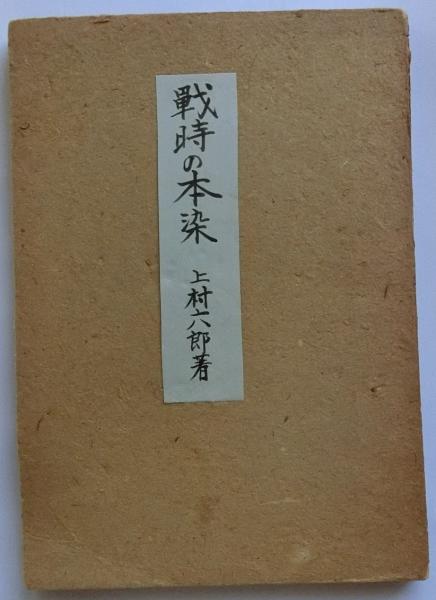 戰時の本染
上村六郎著